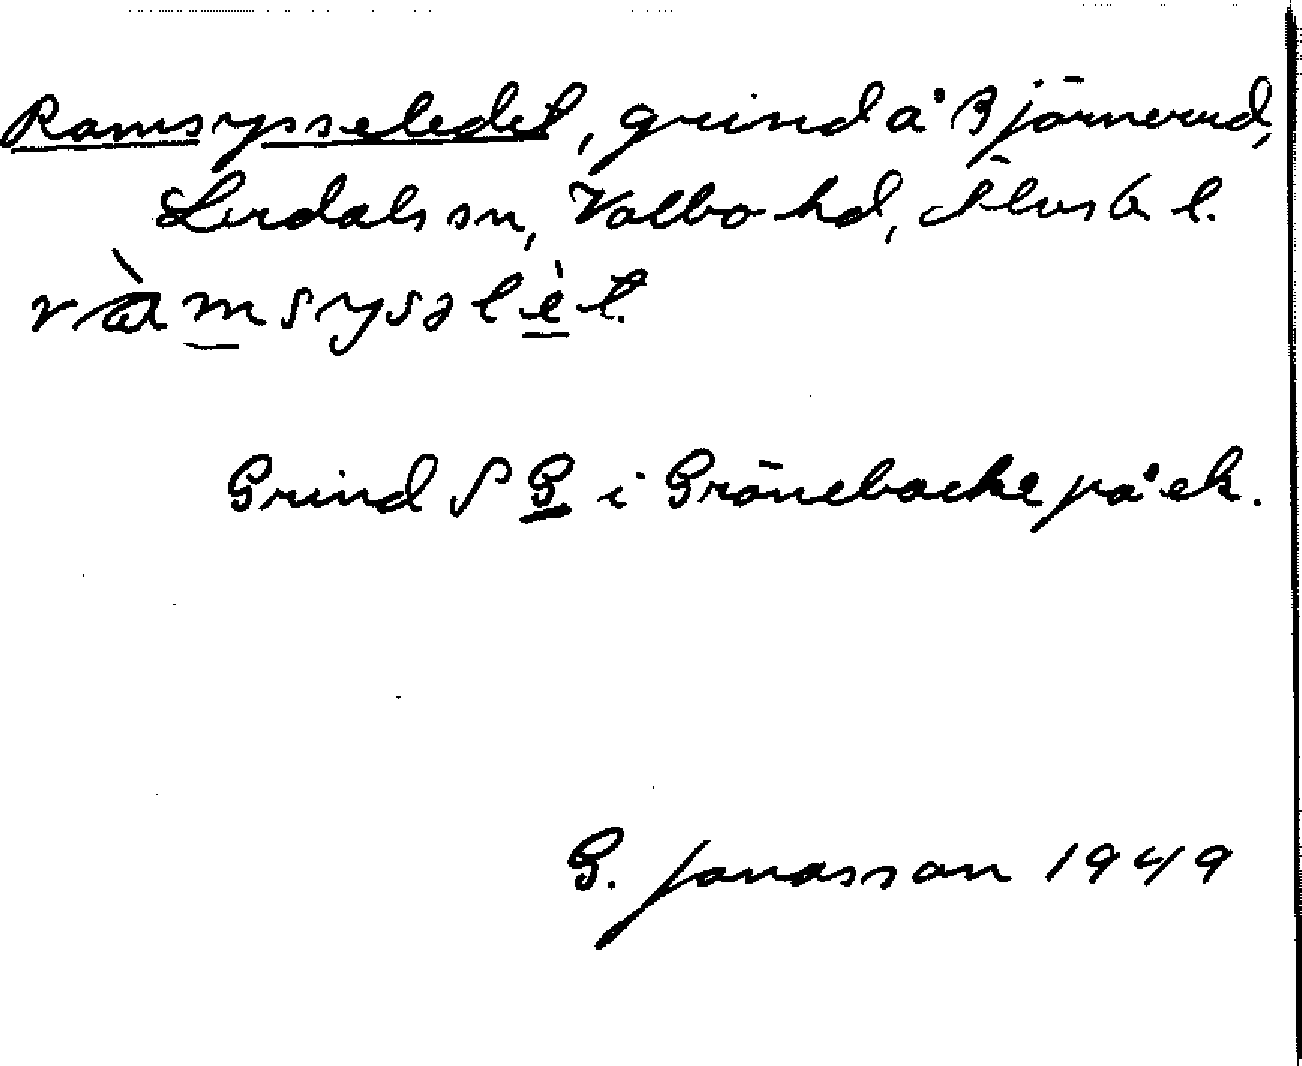 Ramsysseledet, grind å Björnerud,
Lerdals sn, Valbo hd, Älvsb l.
ràmsysəlèt.
Grind S G i Grönebacke på ek.
G. Jonasson 1949